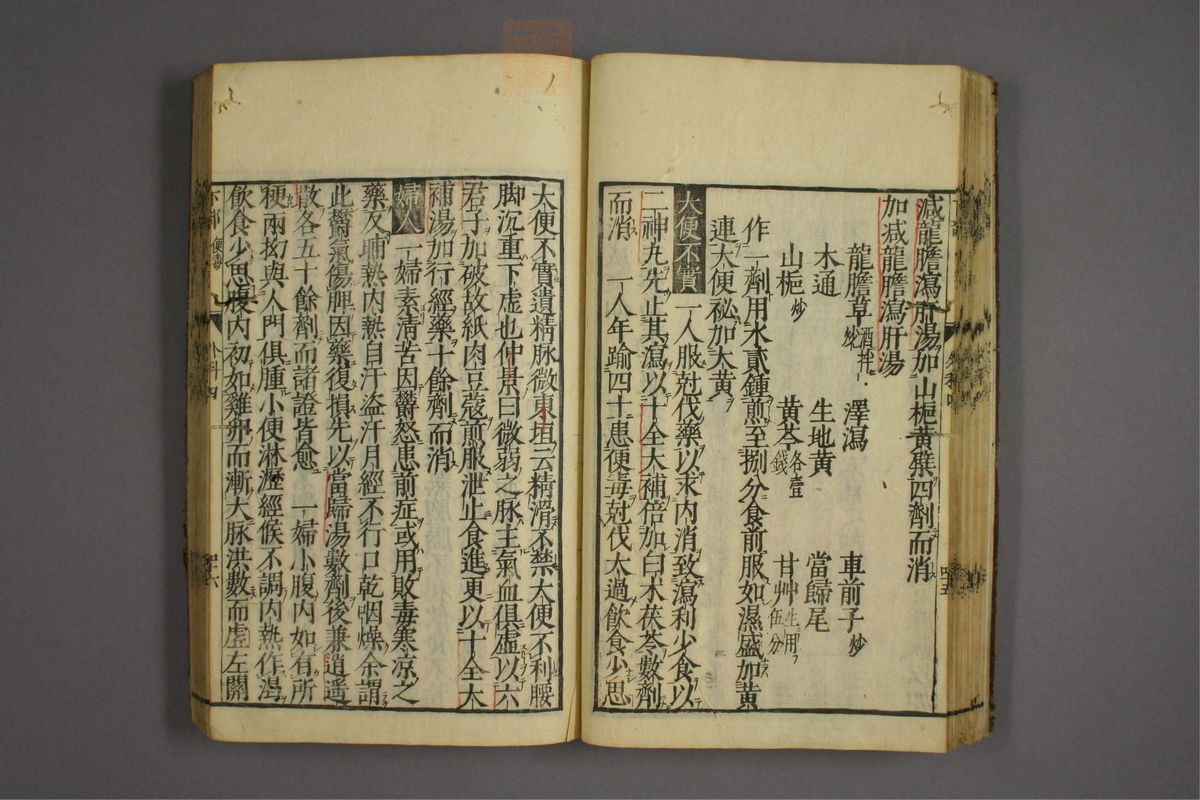 減龍膽瀉肝湯加山梔黃蘗四劑而消
加減龍膽瀉肝湯
龍膽草酒拌炒 澤瀉 車前子炒
木通 生地黃 當歸尾
山梔炒 黃芩各壹錢 甘艸生用伍分
作一劑用水貳鍾煎至捌分食前服如濕盛加黃
連大便祕加大黃
大便不實 一人服尅伐藥以求內消致瀉利少食以
二神丸先止其瀉以十全大補倍加白朮茯苓數劑
而消 一人年踰四十患便毒尅伐太過飲食少思
大便不實遺精脉微東垣云精滑不禁大便不利腰
脚沉重下虛也仲景曰微弱之脉主氣血俱虛以六
君子加破故紙肉豆蔻煎服泄止食進更以十全大
補湯加行經藥十餘劑而消
婦人 一婦素清苦因鬱怒患前症或用敗毒寒凉之
藥反晡熱內熱自汗盜汗月經不行口乾咽燥余謂
此鬱氣傷脾因藥復損先以當歸湯數劑後兼逍遥
散各五十餘劑而諸證皆愈 一婦小腹內如有所
梗兩拗與人門俱腫小便淋瀝經候不調內熱作渴
飲食少思腹內初如雞卵而漸大脉洪數而虛左關
下部 便毒 外科四 四十六